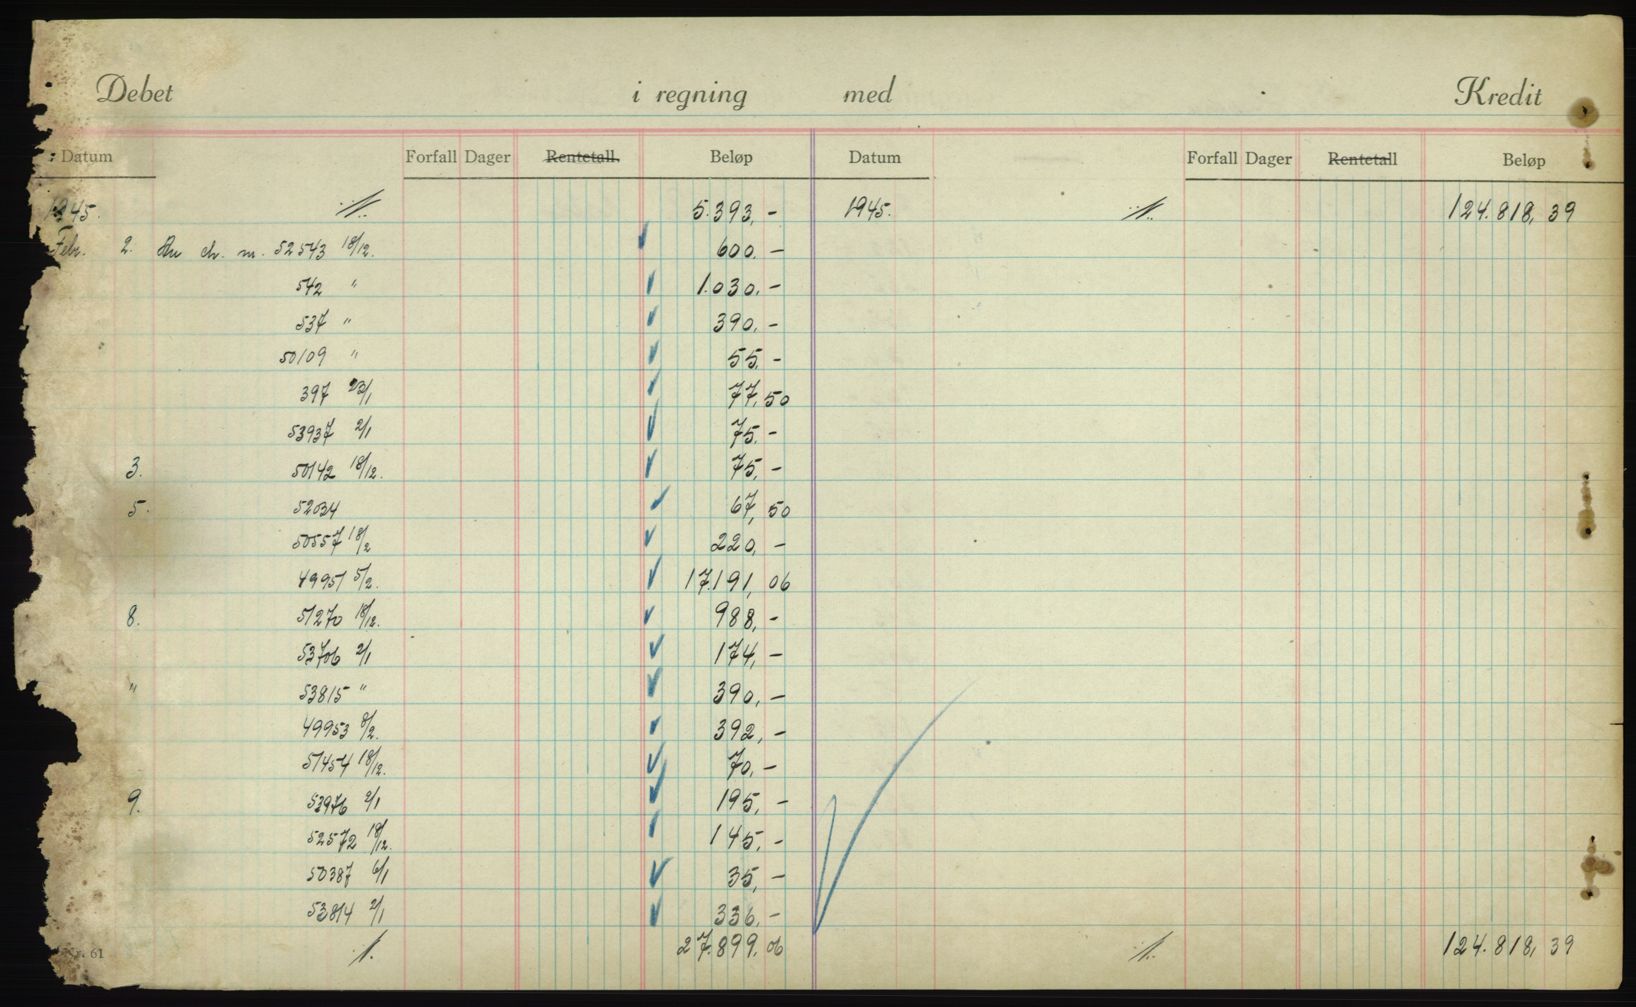 Debet i regning med Kredit
Datum Forfall Dager Rentetall Beløp Datum Forfall Dager Rentetall Beløp
1945. 5.393,- 1945. 124.818,39
Febr. 2. An ch. nr. 52543 18/12. 600,-
542 " 1.030,-
537 " 390,-
50109 " 55,-
397 23/1 77,50
53937 2/1 75,-
3. 50142 18/12. 75,-
5. 52034 67,50
50557 18/2 220,-
49951 5/2. 17.191,06
8. 51270 18/12. 988,-
53706 2/1 174,-
" 53815 " 390,-
49953 8/2. 392,-
51454 18/12. 70,-
9. 53976 2/1 195,-
52572 18/12. 145,-
50387 6/1 35,-
53814 2/1 336,-
27.899,06 124.818,39
Nr. 61